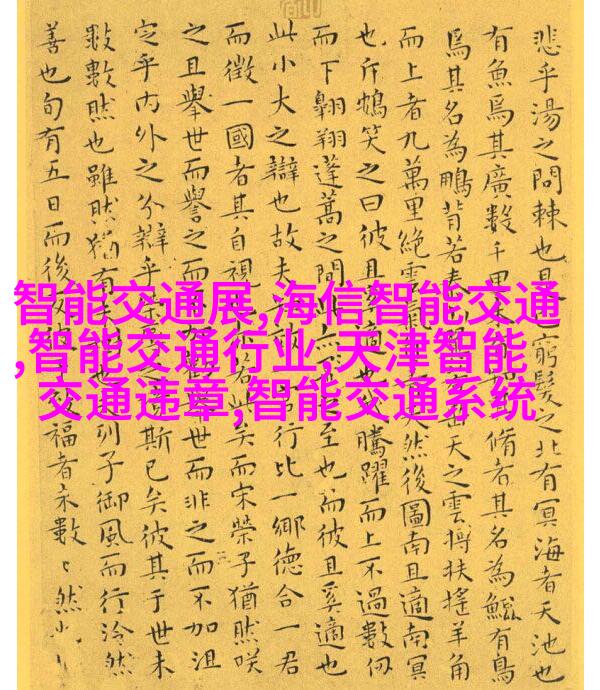 智能交通展,海信智能交通
,智能交通行业,天津智能
交通违章,智能交通系统
悲乎湯之問棘也是窮髮之北有冥海者天池也
有魚焉其廣數千里未脩者其名為鯤有鳥
焉其名為鵬背若泰垂天之雲摶扶搖羊角
而上者九萬里絕雲氣天然後圖南且適南冥
也斥鴳笑之曰彼且適也騰躍而上不過數仞
而下翱翔蓬蒿之間此至也而彼且奚適也
此小大之辯也故夫行比一鄉德合一君
而徵一國者其自視若此矣而宋榮子猶然咲
之且舉世而譽之而加世而非之而不加沮
定乎內外之分辯乎之斯已矣彼其于世未
數數然也雖然猶有未也列子御風而行泠然
善也旬有五日而後反彼福者未數〻然也